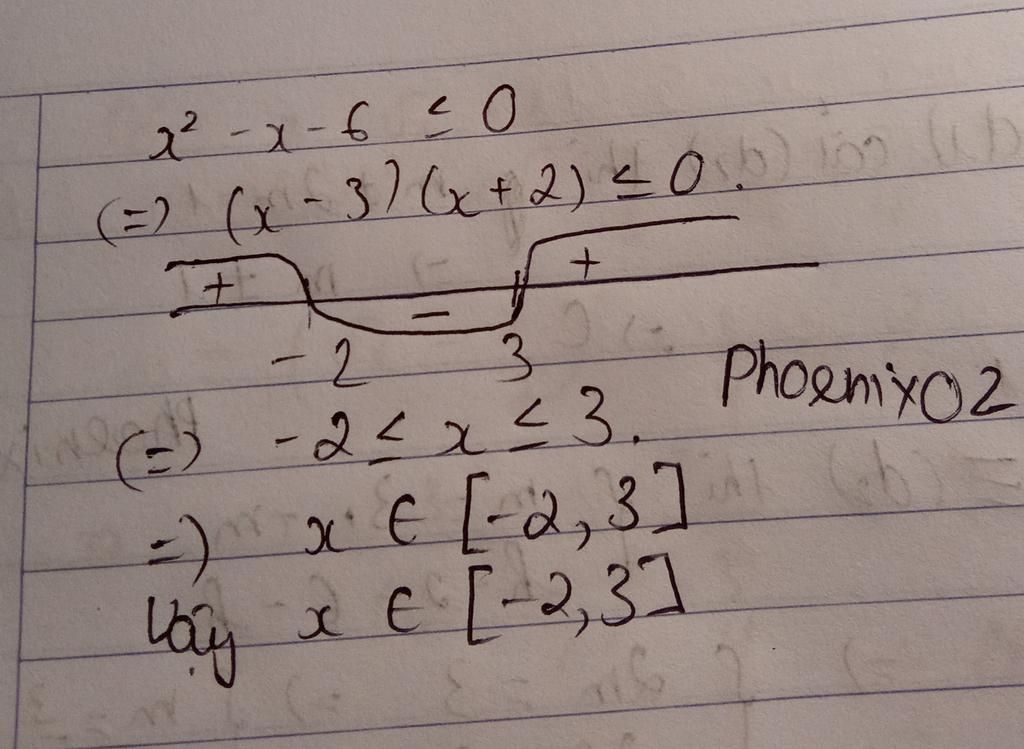 x² - x - 6 ≤ 0
(=) (x - 3) (x + 2) ≤ 0.
+ - +
-2 3
Phoenix02
(=) -2 ≤ x ≤ 3.
=) x ∈ [-2, 3]
Vậy x ∈ [-2, 3]